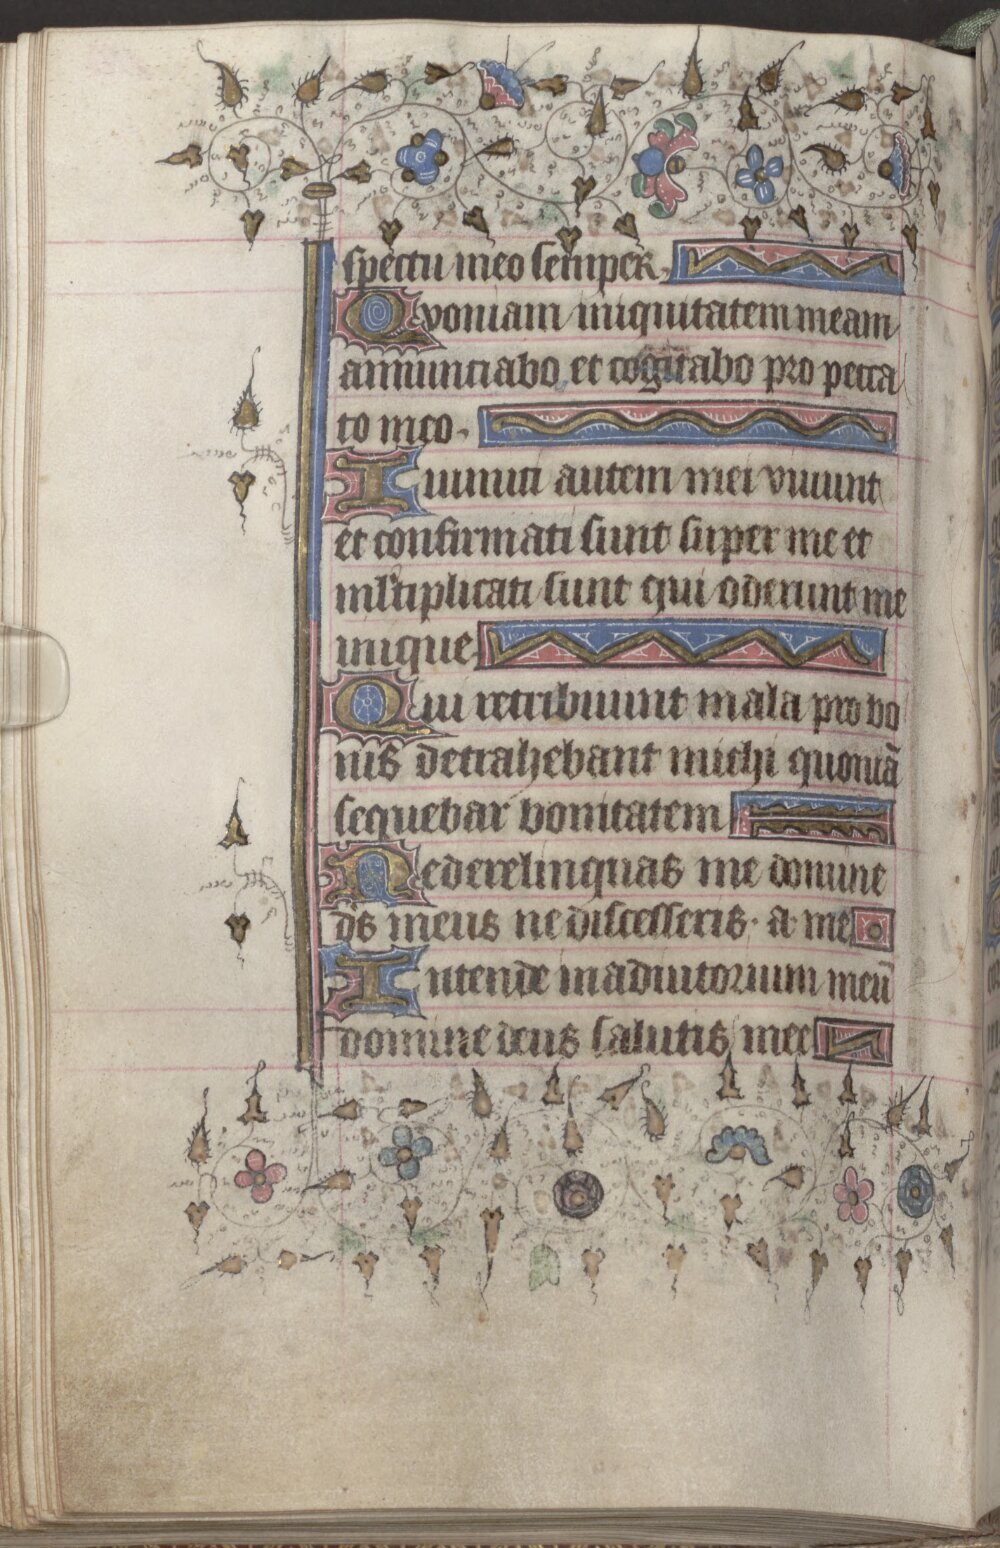 spectu meo semper.
Quoniam iniquitatem meam
annunciabo et cogitabo pro pecca
to meo.
Inimici autem mei vivunt
et confirmati sunt super me et
mltiplicati sunt qui oderunt me
inique
Qui retribuunt mala pro bo
nis detrahebant michi quoniã
sequebar bonitatem
Ne derelinquas me domine
ds̃ meus ne discesseris · a me
Intende in adiutorium meũ
domine deus salutis mee